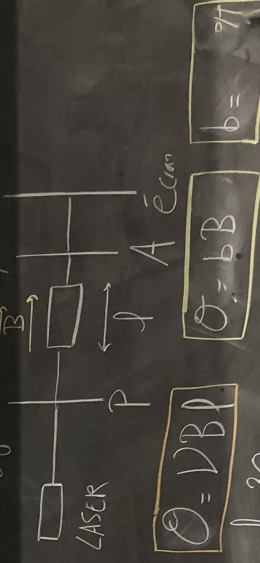 B
LASER
P
l
A
écran
θ = VBl
θ = bB
b =